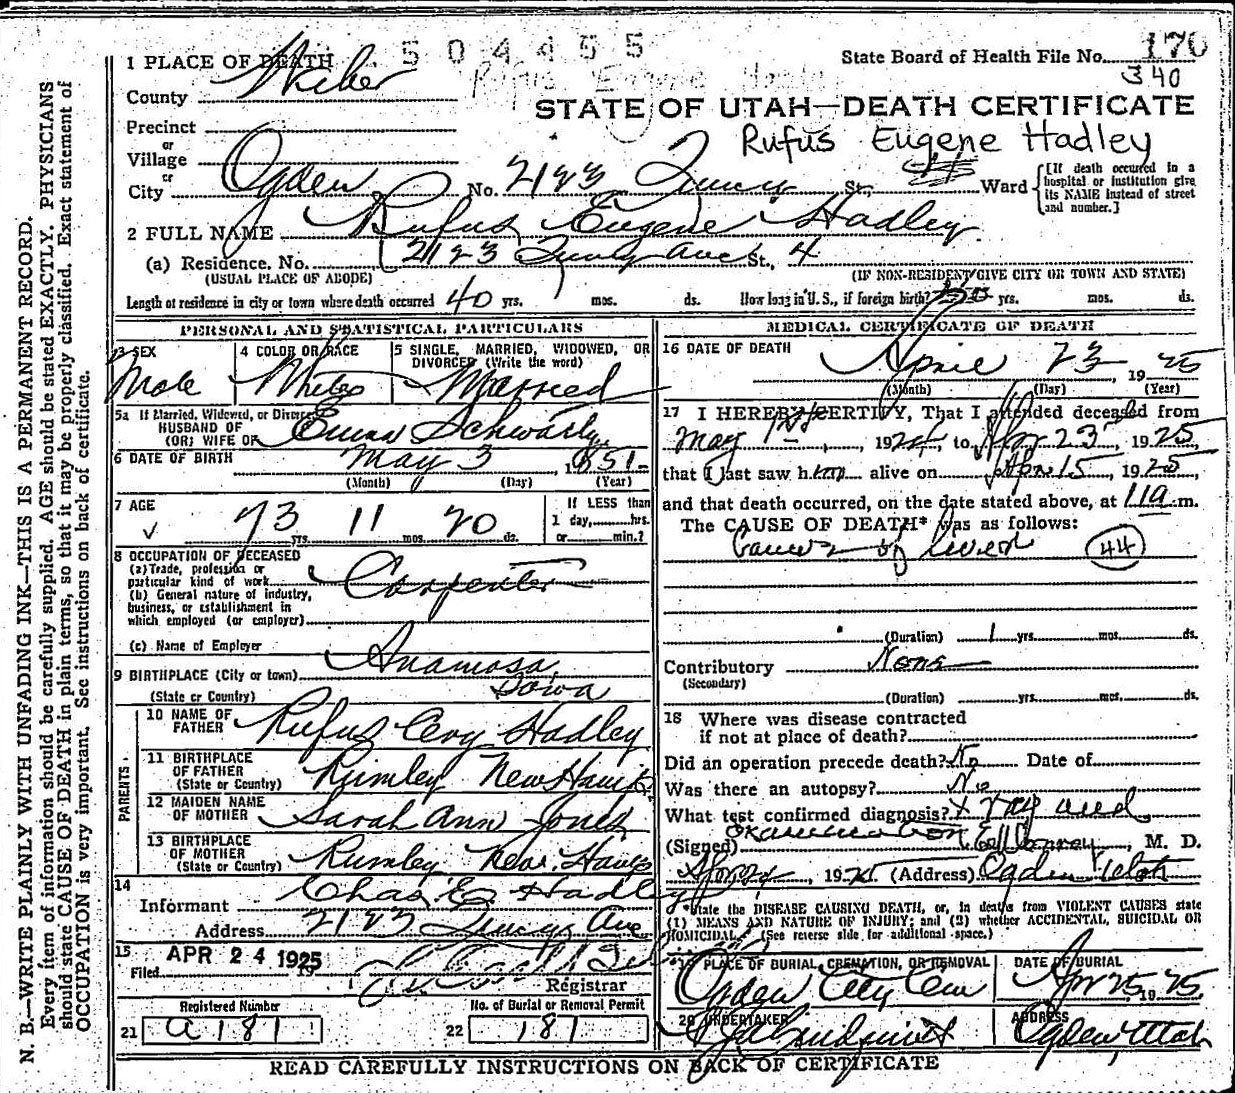 504455
State Board of Health File No. 170
340
1 PLACE OF DEATH
County Weber
STATE OF UTAH—DEATH CERTIFICATE
Rufus Eugene Hadley
Precinct
or
Village
or
City Ogden No. 2123 Quincy St. Ward
[If death occurred in a hospital or institution give its NAME instead of street and number.]
2 FULL NAME Rufus Eugene Hadley
(a) Residence. No. 2123 Quincy Ave St. 4
(USUAL PLACE OF ABODE) (IF NON-RESIDENT GIVE CITY OR TOWN AND STATE)
Length of residence in city or town where death occurred 40 yrs. mos. ds. How long in U.S., if foreign birth? yrs. mos. ds.
PERSONAL AND STATISTICAL PARTICULARS
3 SEX
Male
4 COLOR OR RACE
White
5 SINGLE, MARRIED, WIDOWED, OR DIVORCED (Write the word)
Married
5a If Married, Widowed, or Divorced
HUSBAND OF
(OR) WIFE OF Emma
6 DATE OF BIRTH May 3 1851
(Month) (Day) (Year)
7 AGE
73 yrs. 11 mos. 20 ds.
If LESS than
1 day, hrs.
or min.?
8 OCCUPATION OF DECEASED
(a) Trade, profession or
particular kind of work Carpenter
(b) General nature of industry,
business, or establishment in
which employed (or employer)
(c) Name of Employer
9 BIRTHPLACE (City or town) Anamosa
(State or Country) Iowa
PARENTS
10 NAME OF FATHER Rufus Hadley
11 BIRTHPLACE OF FATHER
(State or Country) Rumley New
12 MAIDEN NAME OF MOTHER Sarah Ann Jones
13 BIRTHPLACE OF MOTHER
(State or Country) Rumley New
14
Informant Chas E Hadley
Address 2123 Quincy Ave
15
Filed APR 24 1925
Registrar
Registered Number
21 a 181
No. of Burial or Removal Permit
22 181
MEDICAL CERTIFICATE OF DEATH
16 DATE OF DEATH
April 23, 1925
(Month) (Day) (Year)
17 I HEREBY CERTIFY, That I attended deceased from
May 1st, 1924, to Apr 23, 1925
that I last saw him alive on Apr 15, 1925
and that death occurred, on the date stated above, at 11 a m.
The CAUSE OF DEATH* was as follows:
Cancer of liver 44
(Duration) 1 yrs. mos. ds.
Contributory None
(Secondary)
(Duration) yrs. mos. ds.
18 Where was disease contracted
if not at place of death?
Did an operation precede death? No Date of
Was there an autopsy? No
What test confirmed diagnosis? X ray and
examination
(Signed) M. D.
Apr 24, 19 (Address) Ogden Utah
*State the DISEASE CAUSING DEATH, or, in deaths from VIOLENT CAUSES state
(1) MEANS AND NATURE OF INJURY; and (2) whether ACCIDENTAL, SUICIDAL OR
HOMICIDAL. (See reverse side for additional space.)
19 PLACE OF BURIAL, CREMATION, OR REMOVAL
Ogden City Cem
DATE OF BURIAL
Apr 25, 1925
20 UNDERTAKER
Lindquist
ADDRESS
Ogden, Utah
READ CAREFULLY INSTRUCTIONS ON BACK OF CERTIFICATE
N. B.—WRITE PLAINLY WITH UNFADING INK—THIS IS A PERMANENT RECORD.
Every item of information should be carefully supplied. AGE should be stated EXACTLY. PHYSICIANS
should state CAUSE OF DEATH in plain terms, so that it may be properly classified. Exact statement of
OCCUPATION is very important. See instructions on back of certificate.